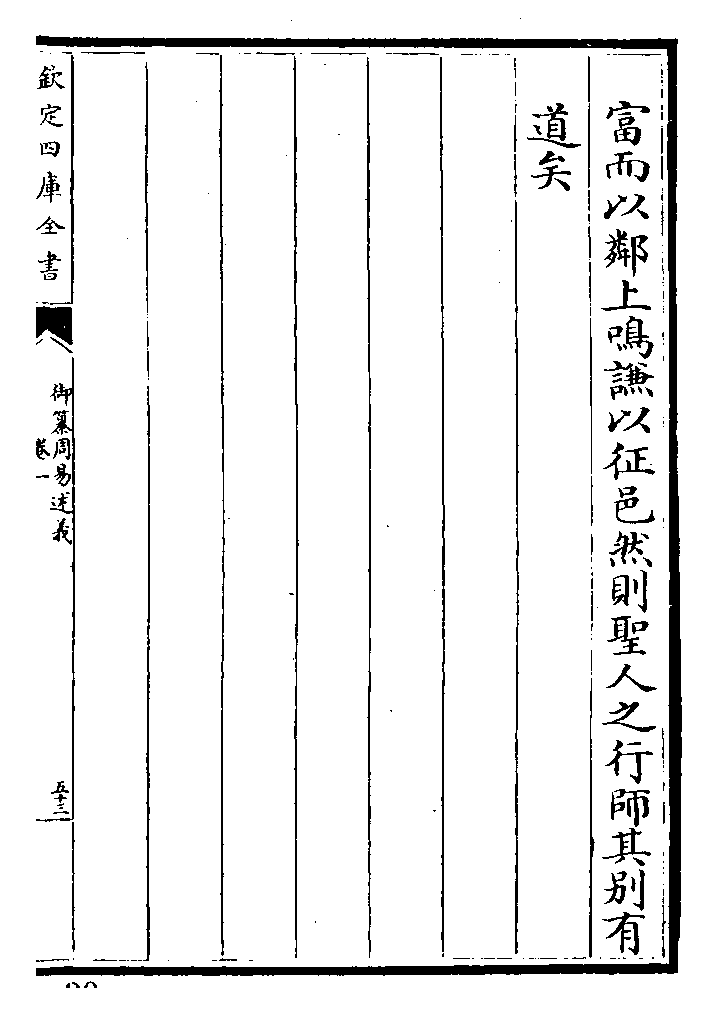 富而以鄰上鳴謙以征邑然則聖人之行師其别有
道矣
欽定四庫全書
御纂周易述義
卷一
五十三